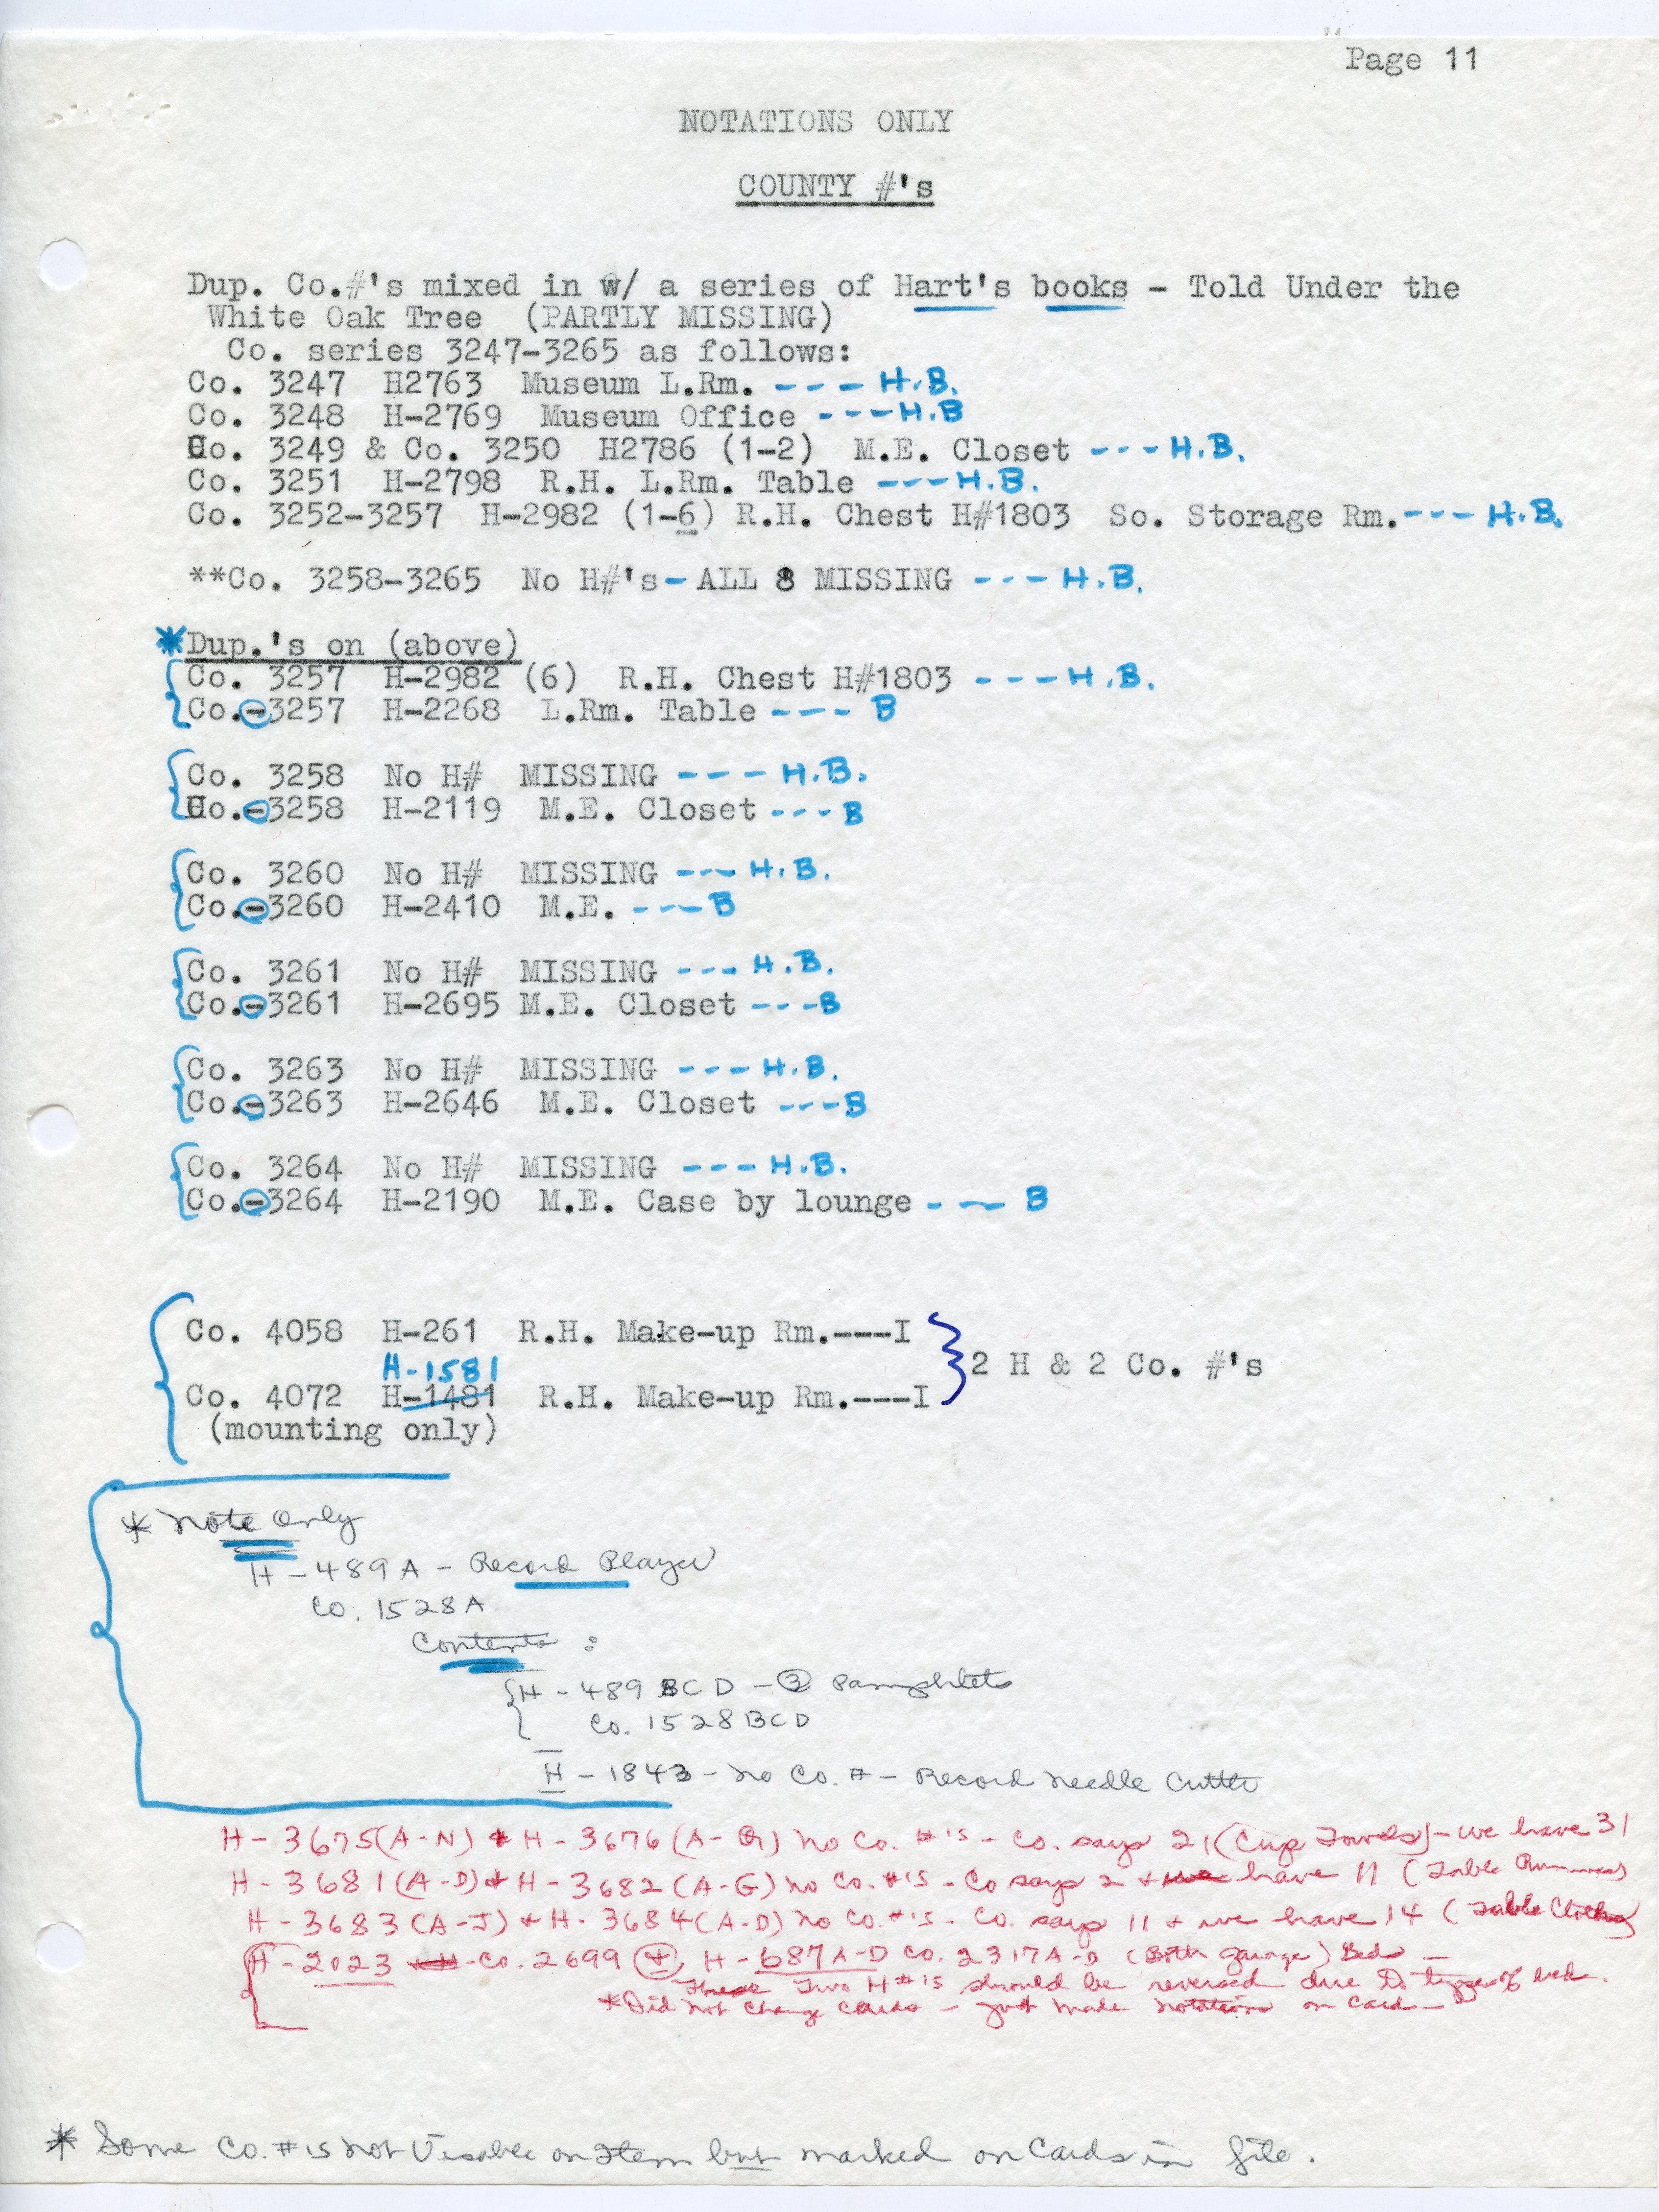 Page 11
NOTATIONS ONLY
COUNTY #'s
Dup. Co.#'s mixed in w/ a series of Hart's books - Told Under the
White Oak Tree (PARTLY MISSING)
Co. series 3247-3265 as follows:
Co. 3247 H2763 Museum L.Rm. --- H.B.
Co. 3248 H-2769 Museum Office --- H.B
Co. 3249 & Co. 3250 H2786 (1-2) M.E. Closet --- H.B.
Co. 3251 H-2798 R.H. L.Rm. Table --- H.B.
Co. 3252-3257 H-2982 (1-6) R.H. Chest H#1803 So. Storage Rm.--- H.B.
**Co. 3258-3265 No H#'s - ALL 8 MISSING --- H.B.
*Dup.'s on (above)
Co. 3257 H-2982 (6) R.H. Chest H#1803 --- H.B.
Co.-3257 H-2268 L.Rm. Table --- B
Co. 3258 No H# MISSING --- H.B.
Co.-3258 H-2119 M.E. Closet --- B
Co. 3260 No H# MISSING --- H.B.
Co.-3260 H-2410 M.E. --- B
Co. 3261 No H# MISSING --- H.B.
Co.-3261 H-2695 M.E. Closet --- B
Co. 3263 No H# MISSING --- H.B.
Co.-3263 H-2646 M.E. Closet --- B
Co. 3264 No H# MISSING --- H.B.
Co.-3264 H-2190 M.E. Case by lounge --- B
Co. 4058 H-261 R.H. Make-up Rm.---I
H-1581
2 H & 2 Co. #'s
Co. 4072 H-1481 R.H. Make-up Rm.---I
(mounting only)
* Note Only
H-489A - Record Player
Co. 1528A
Contents :
H-489 BCD - 3 Pamphlets
Co. 1528BCD
H-1843 - No Co. # - Record Needle Cutter
H-3675(A-N) & H-3676(A-Q) No Co. #'s - Co. says 21 (Cup Towels) - we have 31
H-3681(A-D) & H-3682(A-G) No Co. #'s - Co says 2 & we have 11 (Table Runners)
H-3683(A-J) & H-3684(A-D) No Co. #'s - Co. says 11 & we have 14 (Table Cloths)
H-2023 Co. 2699 & H-687A-D Co. 2317A-D (Both garage) Beds -
These Two H#'s should be reversed due to types of bed.
*Did not change cards - just made notations on card -
* Some Co. #'s not Visable on Item but marked on Cards in file.